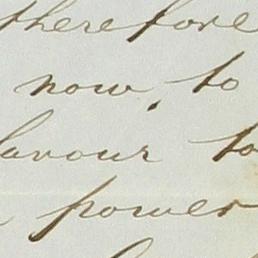 therefore
now, to
favour to
power